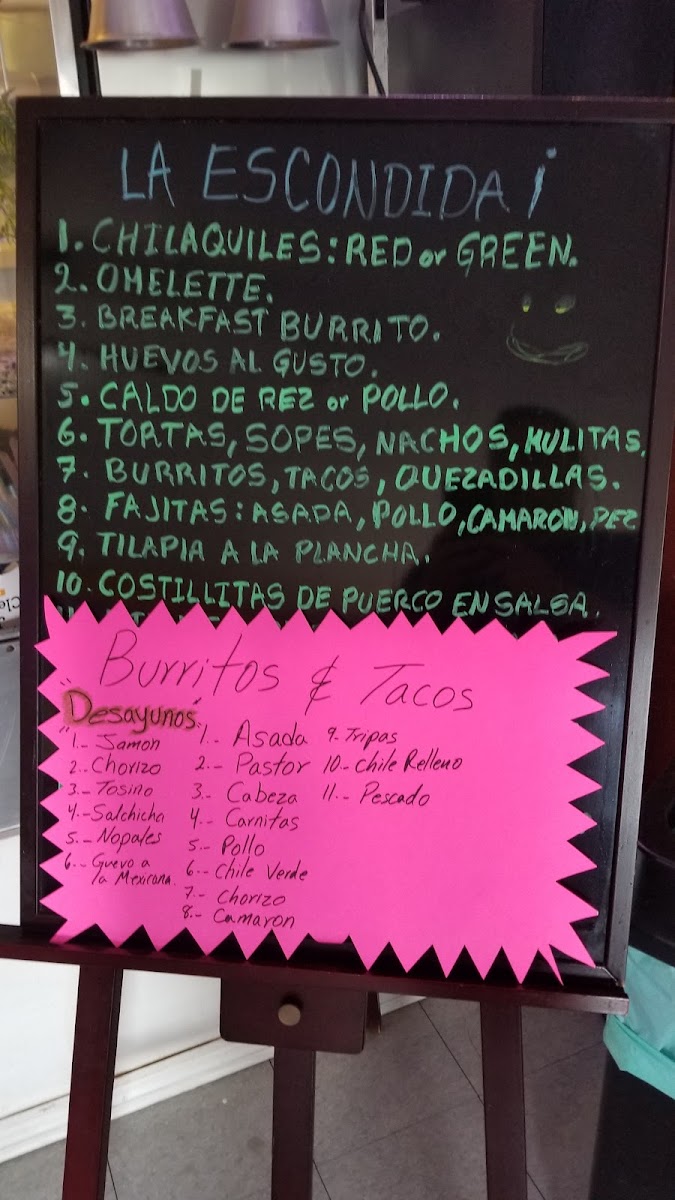 LA ESCONDIDA¡
1. CHILAQUILES: RED or GREEN.
2. OMELETTE.
3. BREAKFAST BURRITO.
4. HUEVOS AL GUSTO.
5. CALDO DE REZ or POLLO.
6. TORTAS, SOPES, NACHOS, MULITAS.
7. BURRITOS, TACOS, QUEZADILLAS.
8. FAJITAS: ASADA, POLLO, CAMARON, PEZ
9. TILAPIA A LA PLANCHA.
10. COSTILLITAS DE PUERCO EN SALSA.
Burritos & Tacos
"Desayunos"
1.- Jamon
2.. Chorizo
3.- Tosino
4.-Salchicha
5.- Nopales
6.- Guevo a
la Mexicana.
1.- Asada
2.- Pastor
3.- Cabeza
4.- Carnitas
5.- Pollo
6.- Chile Verde
7.- Chorizo
8.- Camaron
9.- Tripas
10.- Chile Relleno
11.- Pescado